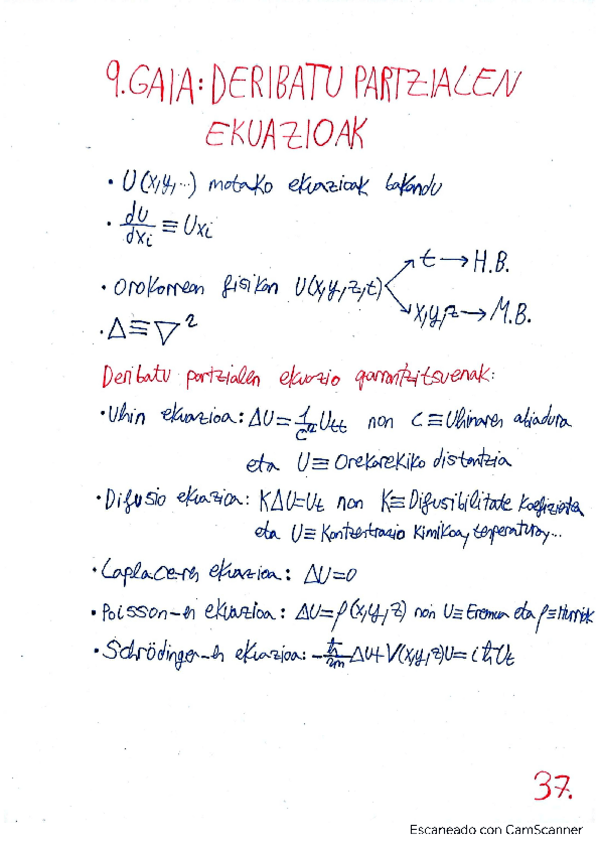 9.GAIA: DERIBATU PARTZIALEN
EKUAZIOAK
• U(x,y,...) motako ekuazioak bakandu
• dU/dxi ≡ Uxi
• Orokorrean fisikan U(x,y,z,t) t → H.B.
x,y,z → M.B.
• Δ ≡ ∇²
Deribatu partzialen ekuazio garrantzitsuenak:
• Uhin ekuazioa: ΔU = 1/c² Utt non C ≡ Uhinaren abiadura
eta U ≡ Orekarekiko distantzia
• Difusio ekuazioa: KΔU=Ut non K ≡ Difusibilitate koefizientea
eta U ≡ Kontzentrazio kimikoa, tenperatura,...
• Laplace-ren ekuazioa: ΔU=0
• Poisson-en ekuazioa: ΔU=ρ(x,y,z) non U ≡ Eremua eta ρ ≡ Iturriak
• Schrödinger-en ekuazioa: -ħ/2m ΔU+V(x,y,z)U=iħUt
37.
Escaneado con CamScanner